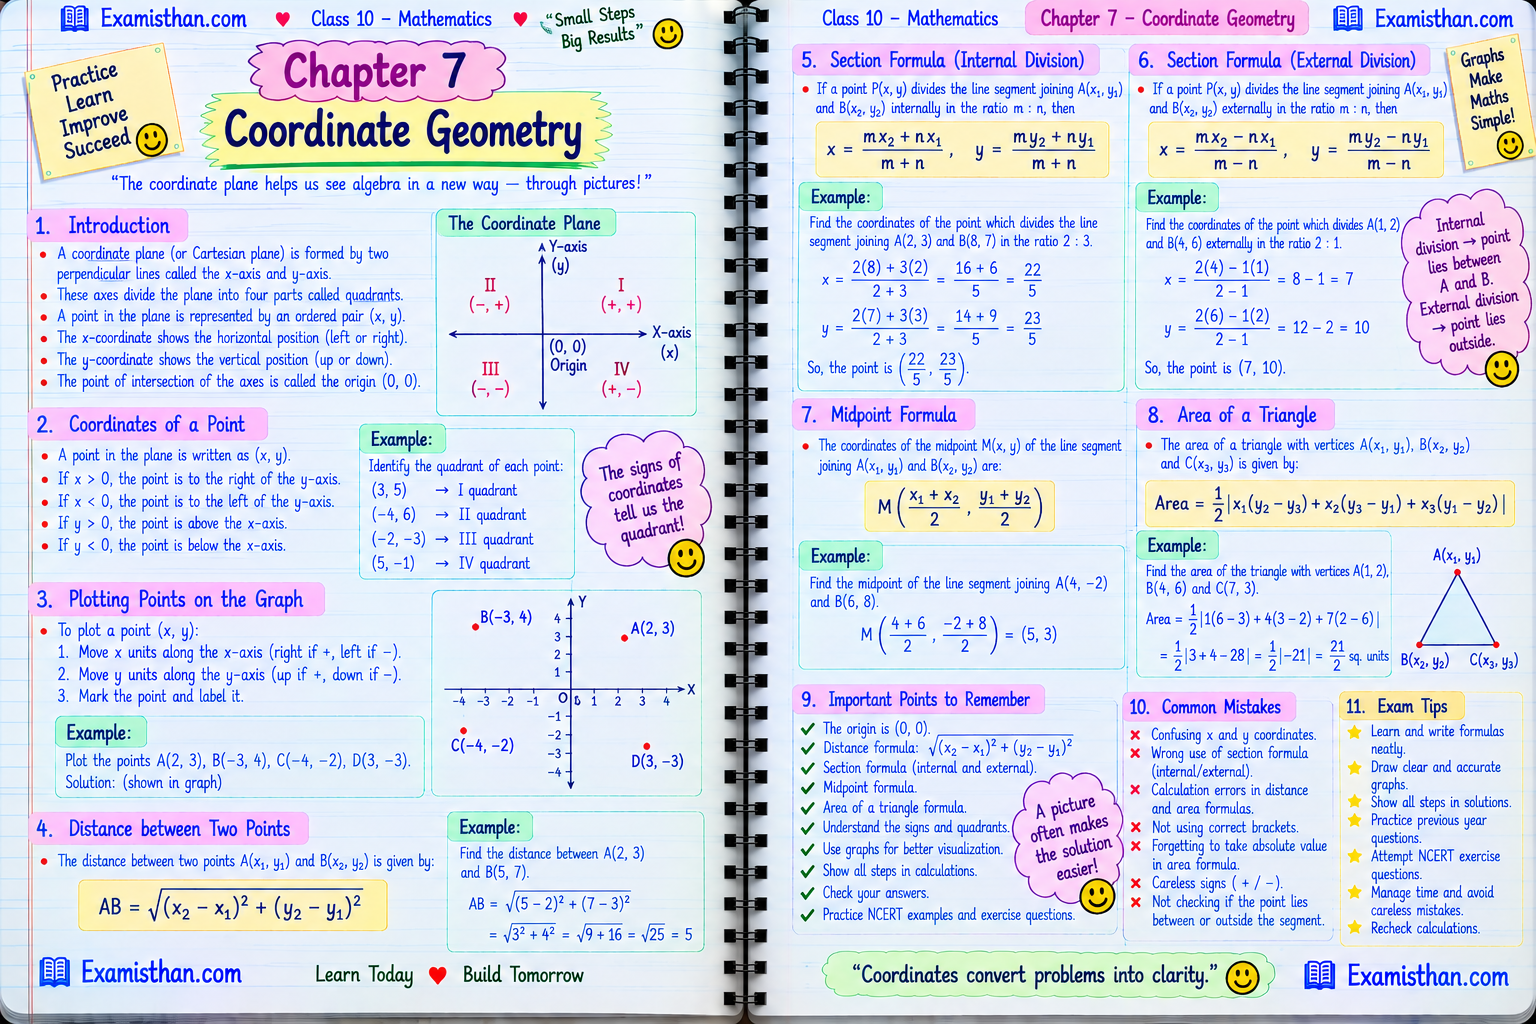 Examisthan.com
Class 10 – Mathematics
“Small Steps
Big Results”
Practice
Learn
Improve
Succeed
Chapter 7
Coordinate Geometry
“The coordinate plane helps us see algebra in a new way — through pictures!”
1. Introduction
• A coordinate plane (or Cartesian plane) is formed by two
perpendicular lines called the x-axis and y-axis.
• These axes divide the plane into four parts called quadrants.
• A point in the plane is represented by an ordered pair (x, y).
• The x-coordinate shows the horizontal position (left or right).
• The y-coordinate shows the vertical position (up or down).
• The point of intersection of the axes is called the origin (0, 0).
The Coordinate Plane
Y-axis
(y)
II
(−, +)
I
(+, +)
X-axis
(x)
(0, 0)
Origin
III
(−, −)
IV
(+, −)
2. Coordinates of a Point
• A point in the plane is written as (x, y).
• If x > 0, the point is to the right of the y-axis.
• If x < 0, the point is to the left of the y-axis.
• If y > 0, the point is above the x-axis.
• If y < 0, the point is below the x-axis.
Example:
Identify the quadrant of each point:
(3, 5) → I quadrant
(−4, 6) → II quadrant
(−2, −3) → III quadrant
(5, −1) → IV quadrant
The signs of
coordinates
tell us the
quadrant!
3. Plotting Points on the Graph
• To plot a point (x, y):
1. Move x units along the x-axis (right if +, left if −).
2. Move y units along the y-axis (up if +, down if −).
3. Mark the point and label it.
Example:
Plot the points A(2, 3), B(−3, 4), C(−4, −2), D(3, −3).
Solution: (shown in graph)
Y
B(−3, 4)
A(2, 3)
4
3
2
1
−4 −3 −2 −1 O 1 2 3 4 X
−1
−2
−3
−4
C(−4, −2)
D(3, −3)
4. Distance between Two Points
• The distance between two points A(x₁, y₁) and B(x₂, y₂) is given by:
AB = √((x₂ − x₁)² + (y₂ − y₁)²)
Example:
Find the distance between A(2, 3)
and B(5, 7).
AB = √((5 − 2)² + (7 − 3)²)
= √(3² + 4²) = √(9 + 16) = √25 = 5
Examisthan.com
Learn Today ♥ Build Tomorrow
Class 10 – Mathematics
Chapter 7 – Coordinate Geometry
Examisthan.com
Graphs
Make
Maths
Simple!
5. Section Formula (Internal Division)
• If a point P(x, y) divides the line segment joining A(x₁, y₁)
and B(x₂, y₂) internally in the ratio m : n, then
x = (mx₂ + nx₁)/(m + n), y = (my₂ + ny₁)/(m + n)
Example:
Find the coordinates of the point which divides the line
segment joining A(2, 3) and B(8, 7) in the ratio 2 : 3.
x = (2(8) + 3(2))/(2 + 3) = (16 + 6)/5 = 22/5
y = (2(7) + 3(3))/(2 + 3) = (14 + 9)/5 = 23/5
So, the point is (22/5, 23/5).
6. Section Formula (External Division)
• If a point P(x, y) divides the line segment joining A(x₁, y₁)
and B(x₂, y₂) externally in the ratio m : n, then
x = (mx₂ − nx₁)/(m − n), y = (my₂ − ny₁)/(m − n)
Example:
Find the coordinates of the point which divides A(1, 2)
and B(4, 6) externally in the ratio 2 : 1.
x = (2(4) − 1(1))/(2 − 1) = 8 − 1 = 7
y = (2(6) − 1(2))/(2 − 1) = 12 − 2 = 10
So, the point is (7, 10).
Internal
division → point
lies between
A and B.
External division
→ point lies
outside.
7. Midpoint Formula
• The coordinates of the midpoint M(x, y) of the line segment
joining A(x₁, y₁) and B(x₂, y₂) are:
M((x₁ + x₂)/2, (y₁ + y₂)/2)
Example:
Find the midpoint of the line segment joining A(4, −2)
and B(6, 8).
M((4 + 6)/2, (−2 + 8)/2) = (5, 3)
8. Area of a Triangle
• The area of a triangle with vertices A(x₁, y₁), B(x₂, y₂)
and C(x₃, y₃) is given by:
Area = 1/2 |x₁(y₂ − y₃) + x₂(y₃ − y₁) + x₃(y₁ − y₂)|
Example:
Find the area of the triangle with vertices A(1, 2),
B(4, 6) and C(7, 3).
Area = 1/2 |1(6 − 3) + 4(3 − 2) + 7(2 − 6)|
= 1/2 |3 + 4 − 28| = 1/2 |−21| = 21/2 sq. units
A(x₁, y₁)
B(x₂, y₂) C(x₃, y₃)
9. Important Points to Remember
✓ The origin is (0, 0).
✓ Distance formula: √((x₂ − x₁)² + (y₂ − y₁)²)
✓ Section formula (internal and external).
✓ Midpoint formula.
✓ Area of a triangle formula.
✓ Understand the signs and quadrants.
✓ Use graphs for better visualization.
✓ Show all steps in calculations.
✓ Check your answers.
✓ Practice NCERT examples and exercise questions.
A picture
often makes
the solution
easier!
10. Common Mistakes
✗ Confusing x and y coordinates.
✗ Wrong use of section formula
(internal/external).
✗ Calculation errors in distance
and area formulas.
✗ Not using correct brackets.
✗ Forgetting to take absolute value
in area formula.
✗ Careless signs ( + / −).
✗ Not checking if the point lies
between or outside the segment.
11. Exam Tips
★ Learn and write formulas
neatly.
★ Draw clear and accurate
graphs.
★ Show all steps in solutions.
★ Practice previous year
questions.
★ Attempt NCERT exercise
questions.
★ Manage time and avoid
careless mistakes.
★ Recheck calculations.
“Coordinates convert problems into clarity.”
Examisthan.com